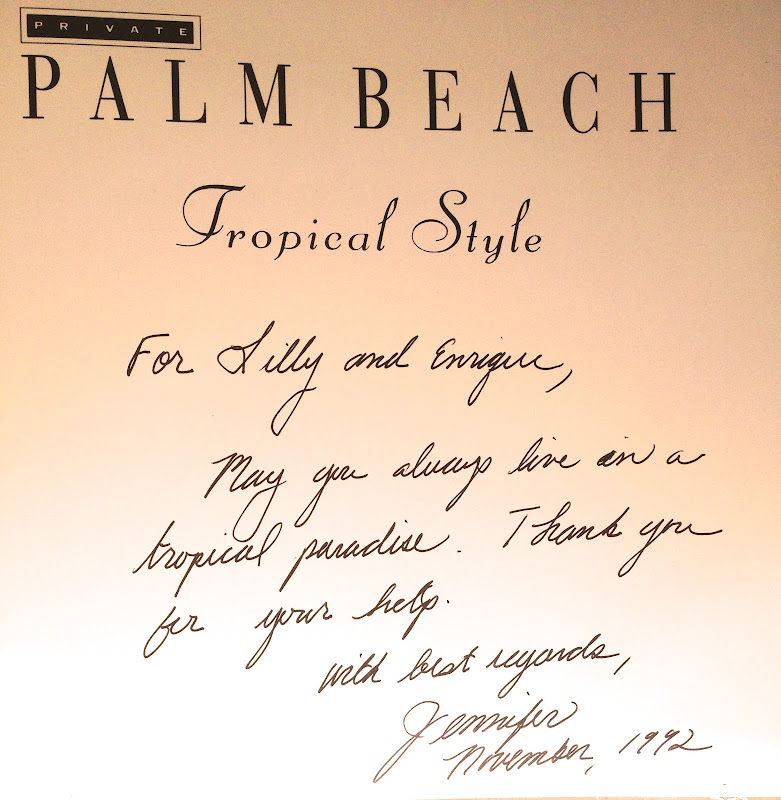 PRIVATE
PALM BEACH
Tropical Style
For Lilly and Enrique,
May you always live in a
tropical paradise. Thank you
for your help.
with best regards,
Jennifer
November, 1992